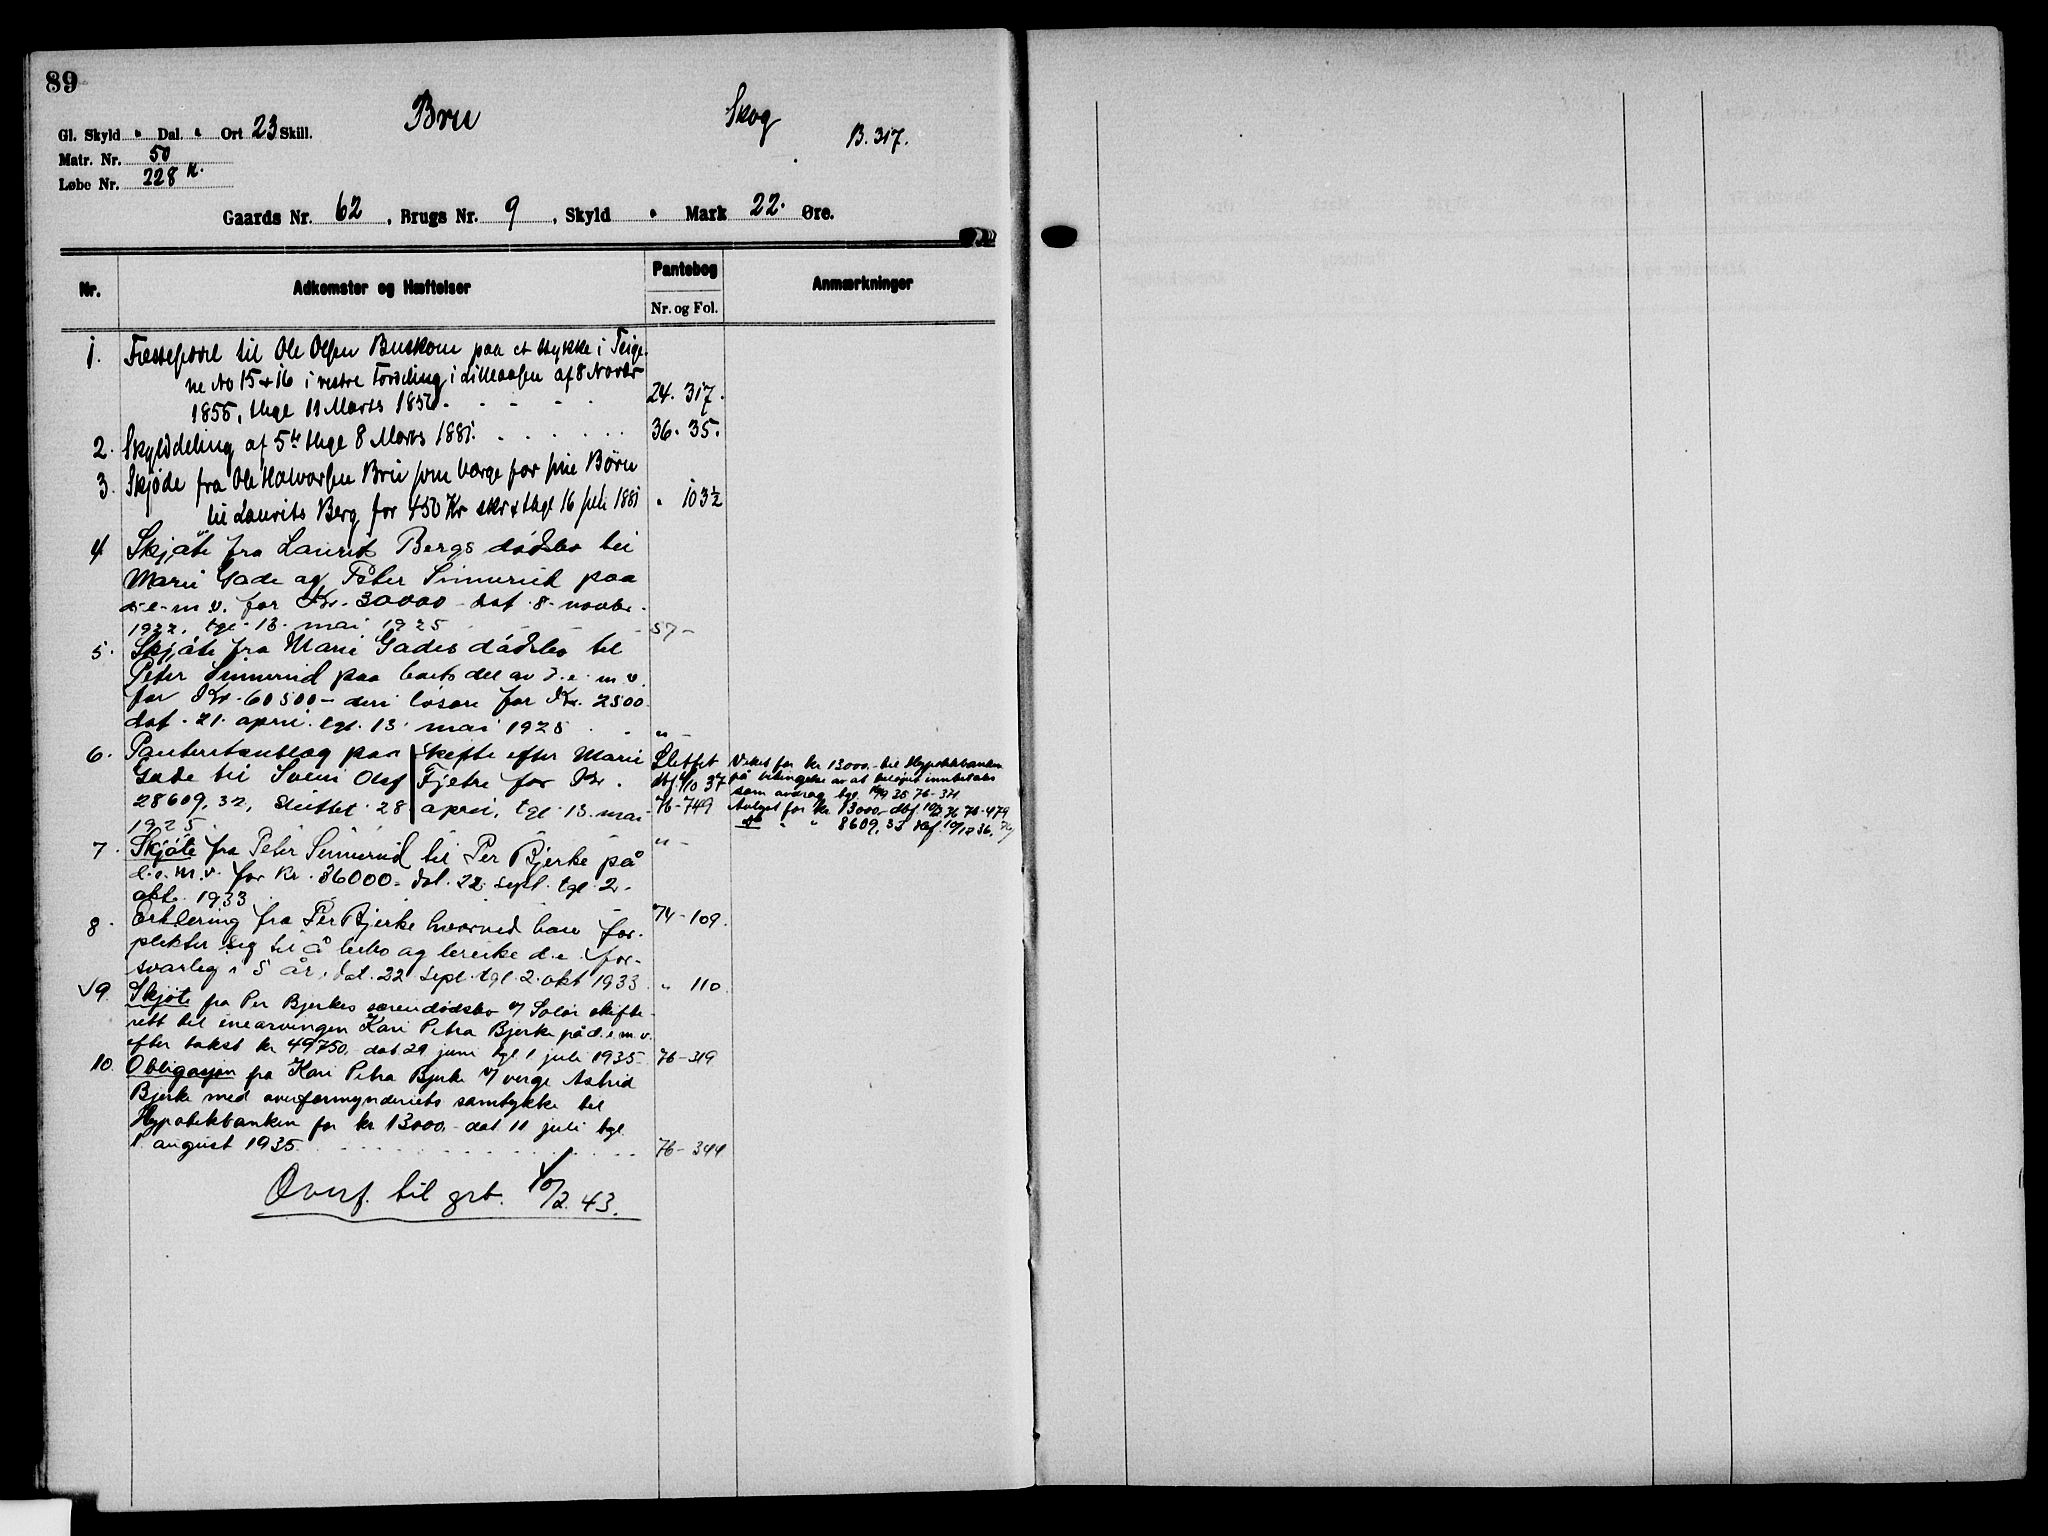 89
Bru Skog
B. 317.
Gl. Skyld " Dal. " Ort 23 Skill.
Matr. Nr. 50
Løbe Nr. 228 k.
Gaards Nr. 62, Brugs Nr. 9, Skyld " Mark 22. Øre.
Nr. Adkomster og Hæftelser Pantebog Nr. og Fol. Anmærkninger
1. til Ole Olsen Buskom paa et Stykke i Teige-
ne No 15 & 16 i vestre i Lilleaasen af 8 Novbr
1855, thgl 11 Marts 1856. 24. 317.
2. Skylddeling af 5te thgl 8 Marts 1881. 36. 35.
3. Skjøde fra Ole Halvorsen Bru som Værge for sine Børn
til Laurits Berg for 450 Kr skr & thgl 16 Juli 1881 " 103½
4 Skjøte fra Laurits Bergs dødsbo til
Marie Gade og Peter Simmerud paa
d. e. m. v. for Kr. 30000 - dat. 8. novbr.
1922, tgl. 13. mai 1925 57 -
5. Skjøte fra Marie Gades dødsbo til
Peter Simmerud paa boets del av d. e. m. v.
for Kr. 60500 - deri løsøre for Kr. 2500.
dat. 21. april. tgl. 13. mai 1925 " -
6. Panteutlæg paa skifte efter Marie
Gade til Svein Olaf Fjetre for Kr.
28609,32, sluttet 28 april, tgl 13. mai
1925. " -
Slettet
dbf. 4/10 37
76-749
Vikes for kr 13000.- til Hypotekbanken
på betingelse av at beløpet innbetales
som avdrag tgl. 19/9 35 76-371
Avlyst for kr. 13000.- dbf. 10/2 36 76-479
do " " 8609,32 dbf. 10/12 36, 76/
7. Skjøte fra Peter Simmerud til Per Bjerke på
d. e. m. v. for kr. 36000.- dat. 22. sept. tgl 2.
okt. 1933 74-109.
8. Erklering fra Per Bjerke hvorved han for-
plikter sig til å bebo og bruke d. e. for-
svarlig i 5 år, dat. 22 sept. tgl. 2. okt 1933 " 110
√9. Skjøte fra Per Bjerkes særeiedødsbo v/ Solør skifte-
rett til enearvingen Kari Petra Bjerke på d. e. m. v.
efter takst kr 49750. dat 29 juni tgl 1 juli 1935 76-319
10. Obligasjon fra Kari Petra Bjerke v/ verge Astrid
Bjerke med overformynderiets samtykke til
Hypotekbanken for kr 13000.- dat 11 juli tgl.
1. august 1935 76-344
Overf. til grb. 10/2. 43.